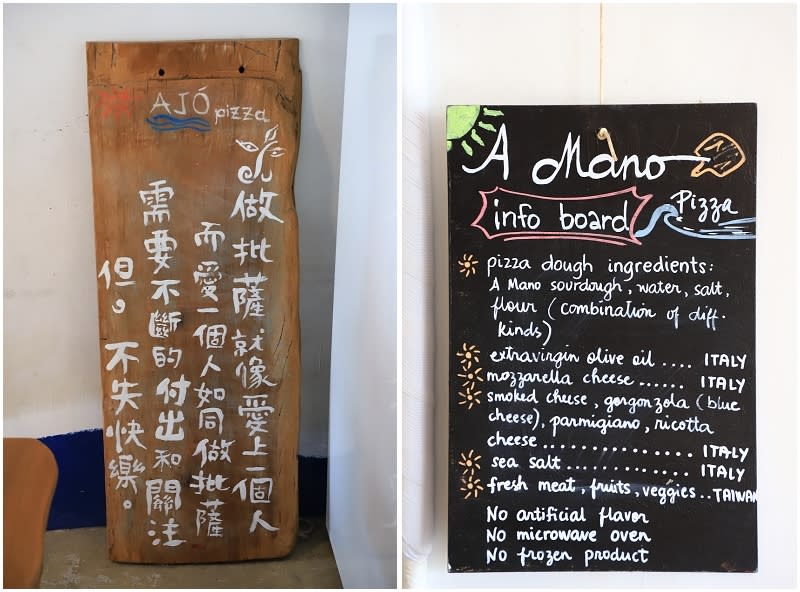 AJÓ pizza
做批薩就像愛上一個人
而愛一個人如同做批薩
需要不斷的付出和關注
但。不失快樂。
A Mano
Pizza
info board
pizza dough ingredients:
A Mano sourdough, water, salt,
flour (combination of diff.
kinds)
extravirgin olive oil .... ITALY
mozzarella cheese ...... ITALY
smoked cheese, gorgonzola (blue
cheese), parmigiano, ricotta
cheese .................. ITALY
sea salt ............. ITALY
fresh meat, fruits, veggies .. TAIWAN
No artificial flavor
No microwave oven
No frozen product